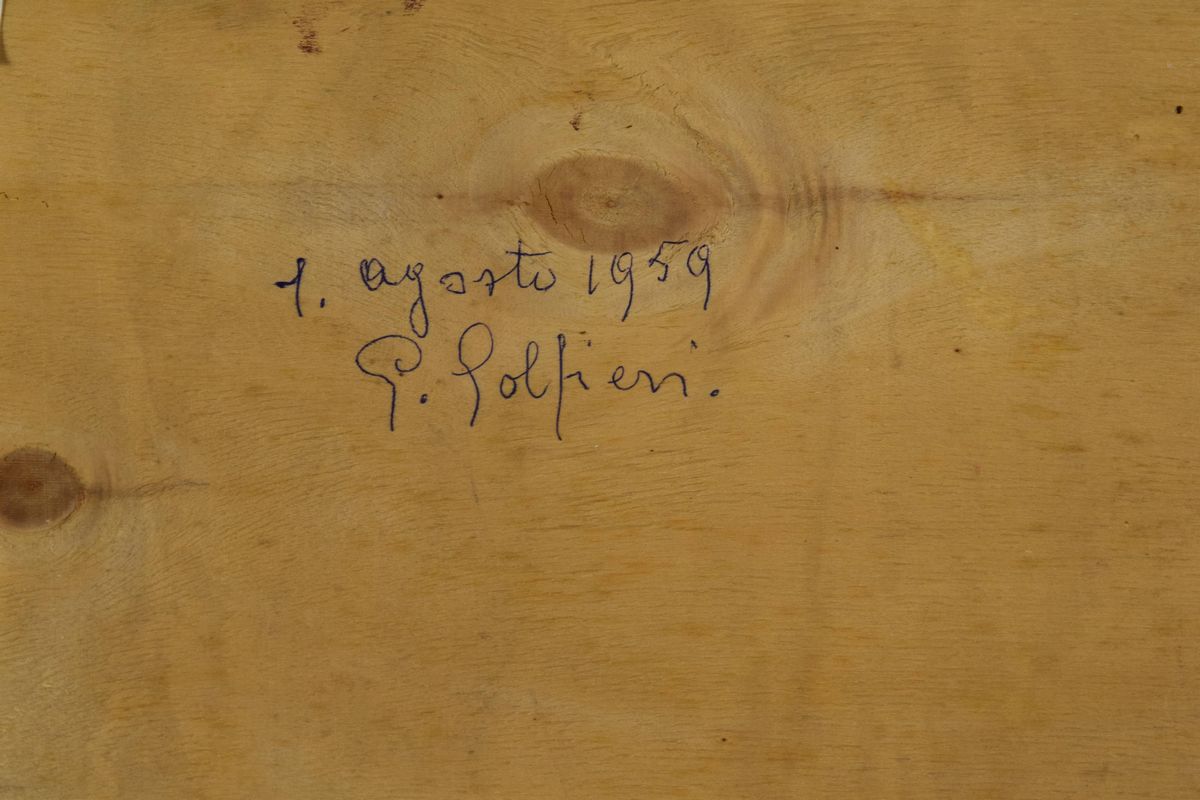 1. agosto 1959
G. Golfieri.